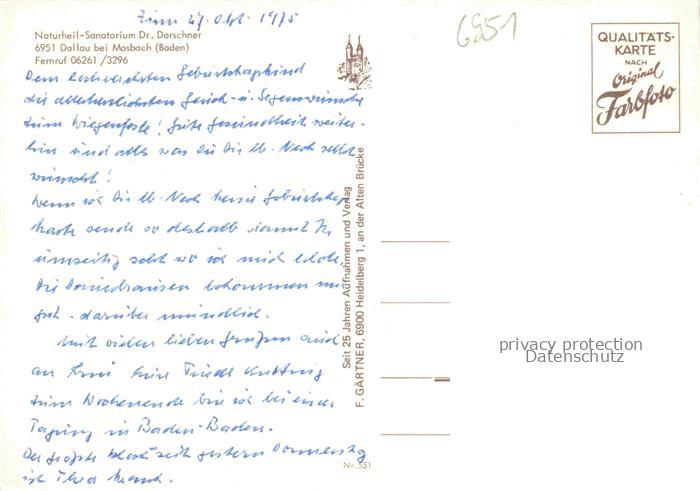 Zum 27. Okt. 1975
6951
Naturheil-Sanatorium Dr. Dorschner
6951 Dallau bei Mosbach (Baden)
Fernruf 06261 /3296
QUALITÄTS-
KARTE
NACH
Original
Farbfoto
Geburtstagskind
die allerherzlichsten Segenswünsche
zum Wiegenfeste! Gute Gesundheit weiter-
hin und alles was Du Dir
wünscht!
Wenn ich Geburtstags
karte sende so deshalb damit
umseitig seht wo ich mich erhole.
bekommen mir
gut. darüber mündlich.
Mit vielen lieben Grüßen
an
zum Wochenende bin ich bei einer
Tagung in Baden-Baden.
Der größte seit gestern Donnerstag
ist
Seit 25 Jahren Aufnahmen und Verlag
F. GÄRTNER, 6900 Heidelberg 1, an der Alten Brücke
Nr. 551
privacy protection
Datenschutz